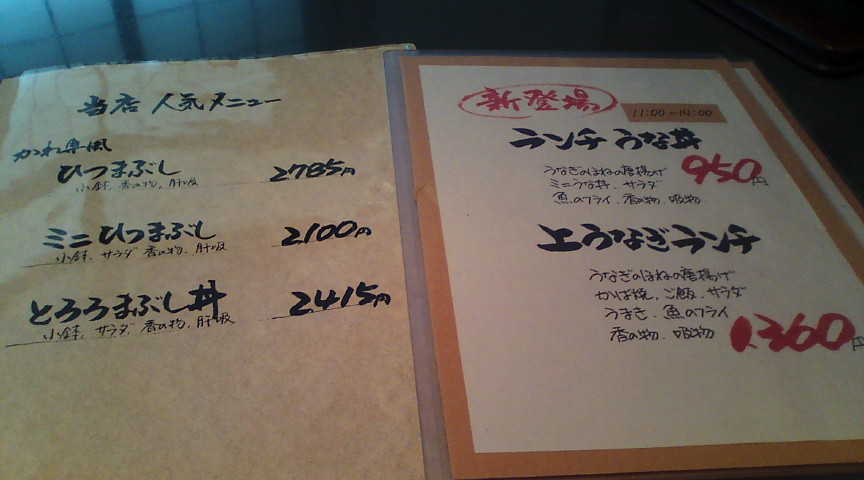 当店 人気メニュー
ひつまぶし 2785円
小鉢、香の物、肝吸
ミニひつまぶし 2100円
小鉢、サラダ 香の物、肝吸
とろろまぶし丼 2415円
小鉢、サラダ、香の物、肝吸
新登場
11:00～14:00
ランチ うな丼
うなぎのほねの唐揚げ 950円
ミニうな丼、サラダ
魚のフライ、香の物、吸物
上うなぎランチ
うなぎのほねの唐揚げ
かば焼、ご飯、サラダ
うまき、魚のフライ
香の物、吸物 1360円